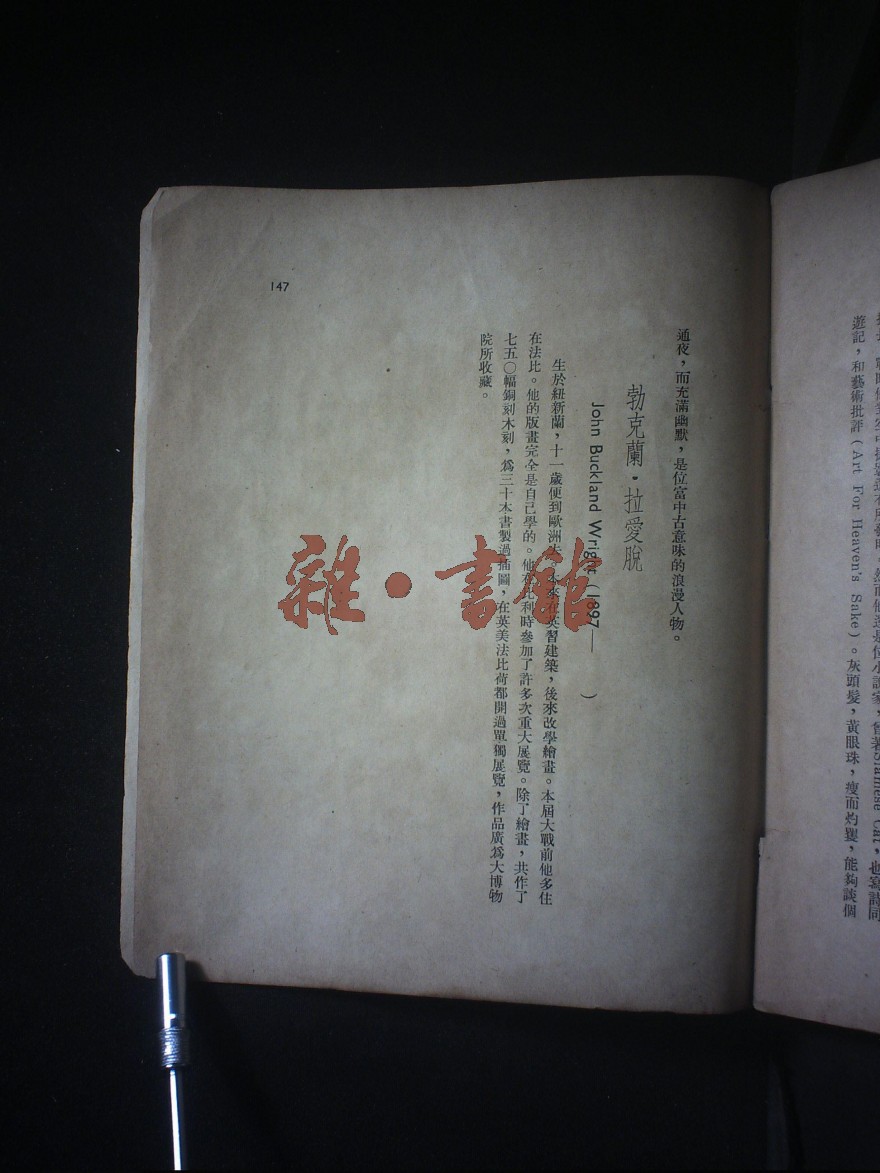 遊記，和藝術批評（Art For Heaven's Sake）。灰頭髮，黃眼珠，瘦而灼㷫，能夠談個
通夜，而充滿幽默，是位富中古意味的浪漫人物。
勃克蘭·拉愛脫
John Buckland Wright（1897—　　）
生於紐新蘭，十一歲便到歐洲去。本來在英習建築，後來改學繪畫。本屆大戰前他多住
在法比。他的版畫完全是自己學的。他在比利時參加了許多次重大展覽。除了繪畫，共作了
七五〇幅銅刻木刻，為三十本書製過插圖，在英美法比荷都開過單獨展覽，作品廣為大博物
院所收藏。
147
雜·書館